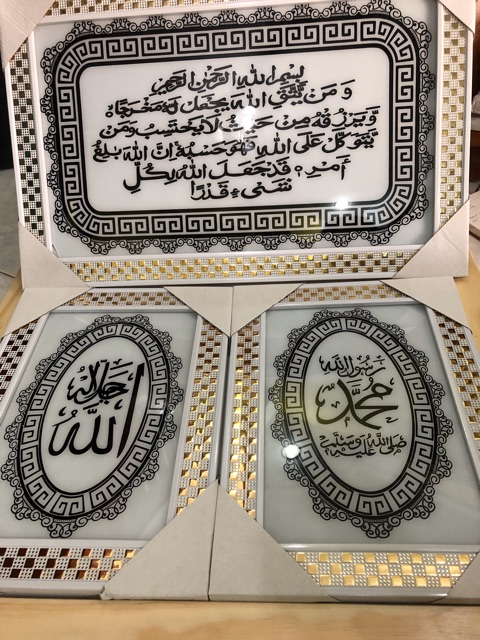 بسم الله الرحمن الرحيم
ومن يتق الله يجعل له مخرجاه
ويرزقه من حيث لا يحتسب ومن
يتوكل على الله فهو حسبه إن الله بلغ
أمره قد جعل الله لكل
شيء قدرا
جل جلاله
الله
رسول الله
محمد
صلى الله عليه وسلم